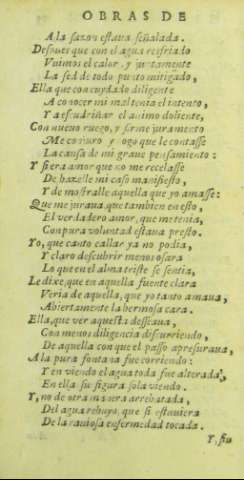 OBRAS DE
A la sazon estaua señalada.
Despues que con el agua resfriado
Vuimos el calor, y juntamente
La sed de todo punto mitigado,
Ella que con cuydado diligente
A conocer mi mal tenia el intento,
Y a escudriñar el animo doliente,
Con nueuo ruego, y firme juramento
Me conjuro y rogo que le contasse
La causa de mi graue pensamiento:
Y si era amor que no me recelasse
De hazelle mi caso manifiesto,
Y de mostralle aquella que yo amasse:
Que me juraua, que tambien en esto,
El verdadero amor, que me tenia,
Con pura voluntad estaua presto.
Yo, que tanto callar ya no podia,
Y claro descubrir menos osara
Lo que en el alma triste se sentia,
Le dixe, que en aquella fuente clara
Veria de aquella, que yo tanto amaua,
Abiertamente la hermosa cara.
Ella, que ver aquesta desseaua,
Con menos diligencia discurriendo,
De aquella con que el passo apresuraua,
A la pura fontana fue corriendo:
Y en viendo el agua toda fue alterada,
En ella su figura sola viendo.
Y, no de otra manera arrebatada,
Del agua rehuyo, que si estuuiera
De la rauiosa enfermedad tocada.
Y, sin